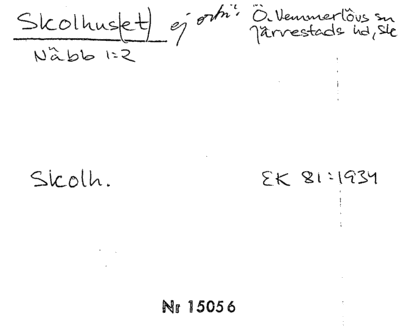 Skolhus(et) ej ortn. Ö. Vemmerlövs sn
Näbb 1:2 Järrestads hd, Sk
Skolh. EK 81:1934
Nr 15056